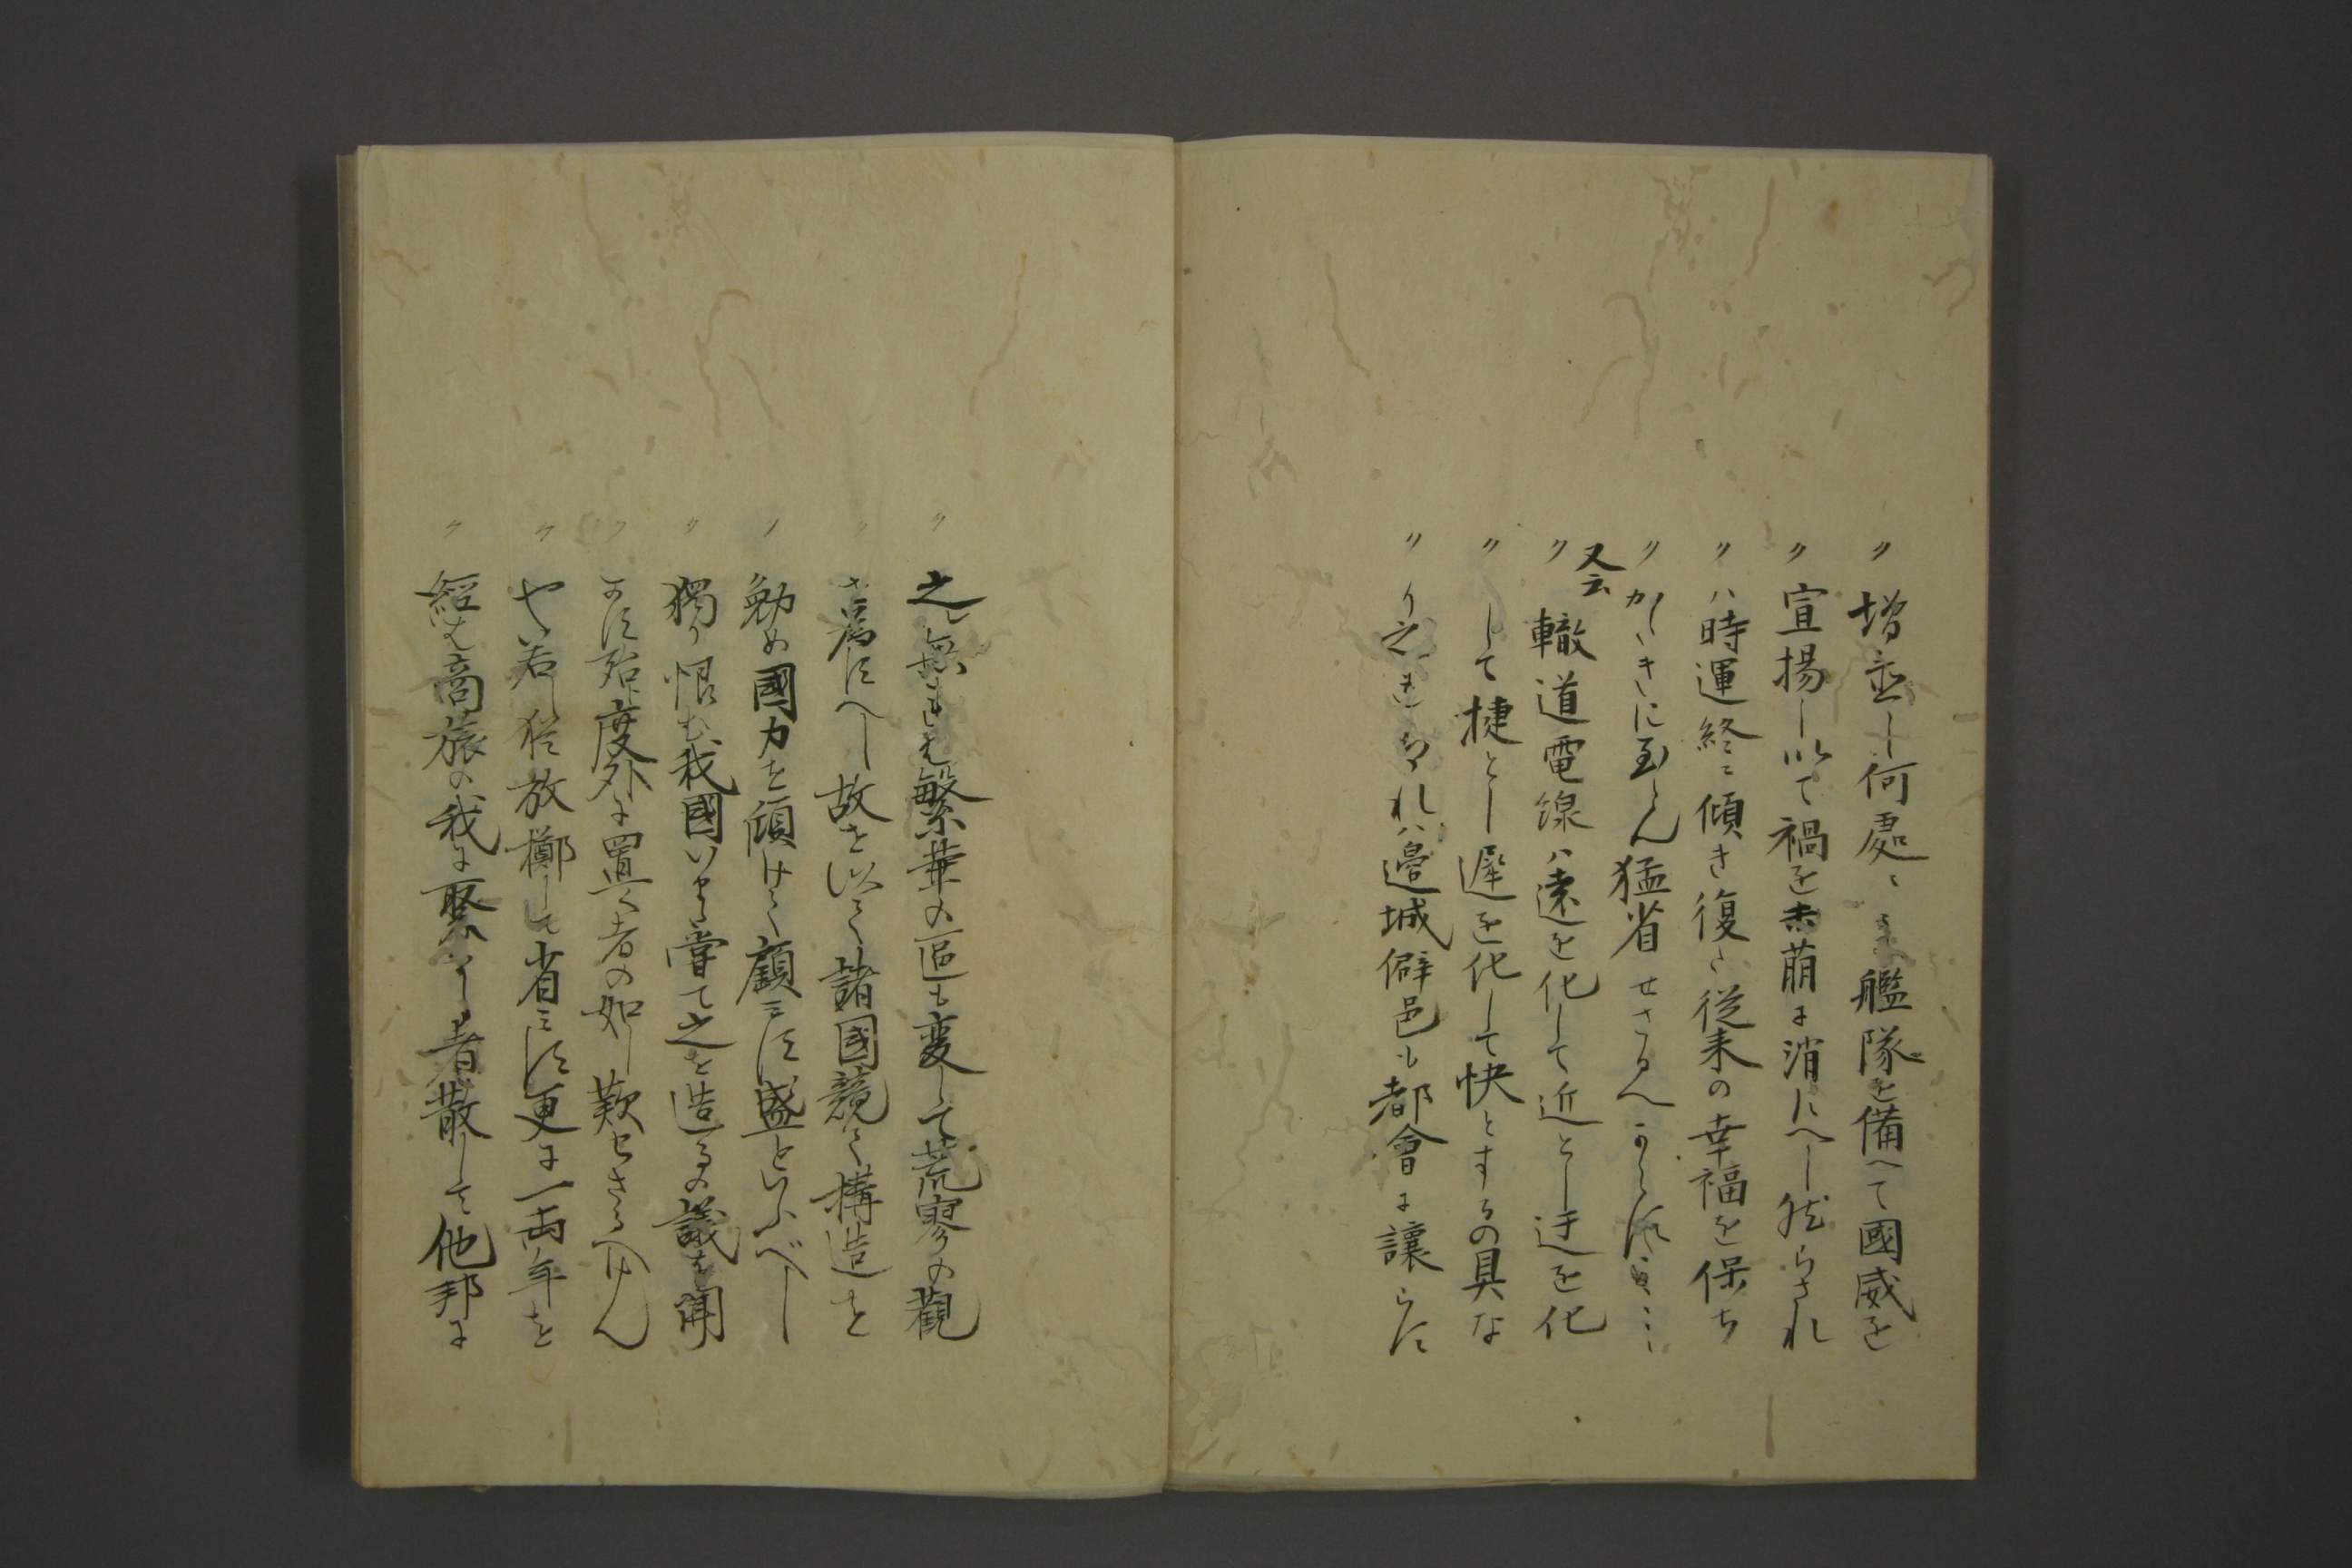 〃増並し何處ニも艦隊を備へて國威を
〃宣揚し以て禍を未萌に消すへし然らされ
〃ハ時運終ニ傾き復た従来の幸福を保ち
〃かたきに至らん猛省せさるへからす
又云
〃轍道電線ハ遠を化して近とし迂を化
〃して捷とし遅を化して快とするの具な
〃り之あれハ邉城僻邑も都會に譲らす
〃之無きも繁華の區も変して荒寥の觀
〃を為すへし故を以て諸國競て構造を
〃勉め國力を傾けて顧ミす盛といふべし
〃獨り恨む我國いまた嘗て之を造るの議を聞
〃かす殆と度外に置く者の如し歎せさるへけん
〃や若し猶放擲して省ミす更に一両年を
〃経は商旅の我に聚りし者散して他邦に